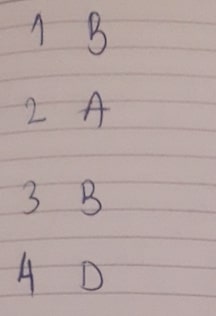 1 B
2 A
3 B
4 D